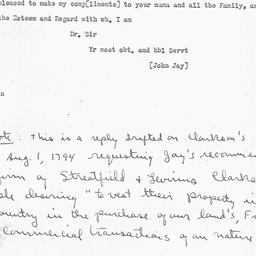 pleased to make my comp[liments] to your mama and all the Family, an
the Esteem and Regard with wh. I am
Dr. Sir
Yr most obt. and hbl Servt
[John Jay]
n
ote: This is a reply drafted on Clarkson's
Aug. 1, 1794 requesting Jay's recomme
firm of Streatfield & Levinus Clarks
ple desiring "to vest their property i
ountry in the purchase of our land's, F
Commercial transactions of our nature